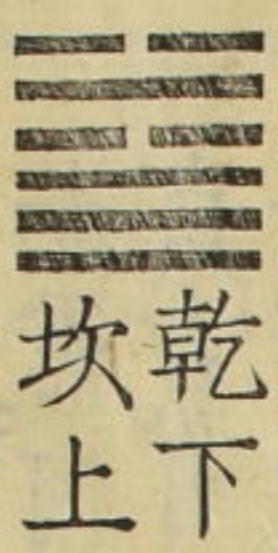 乾下
坎上